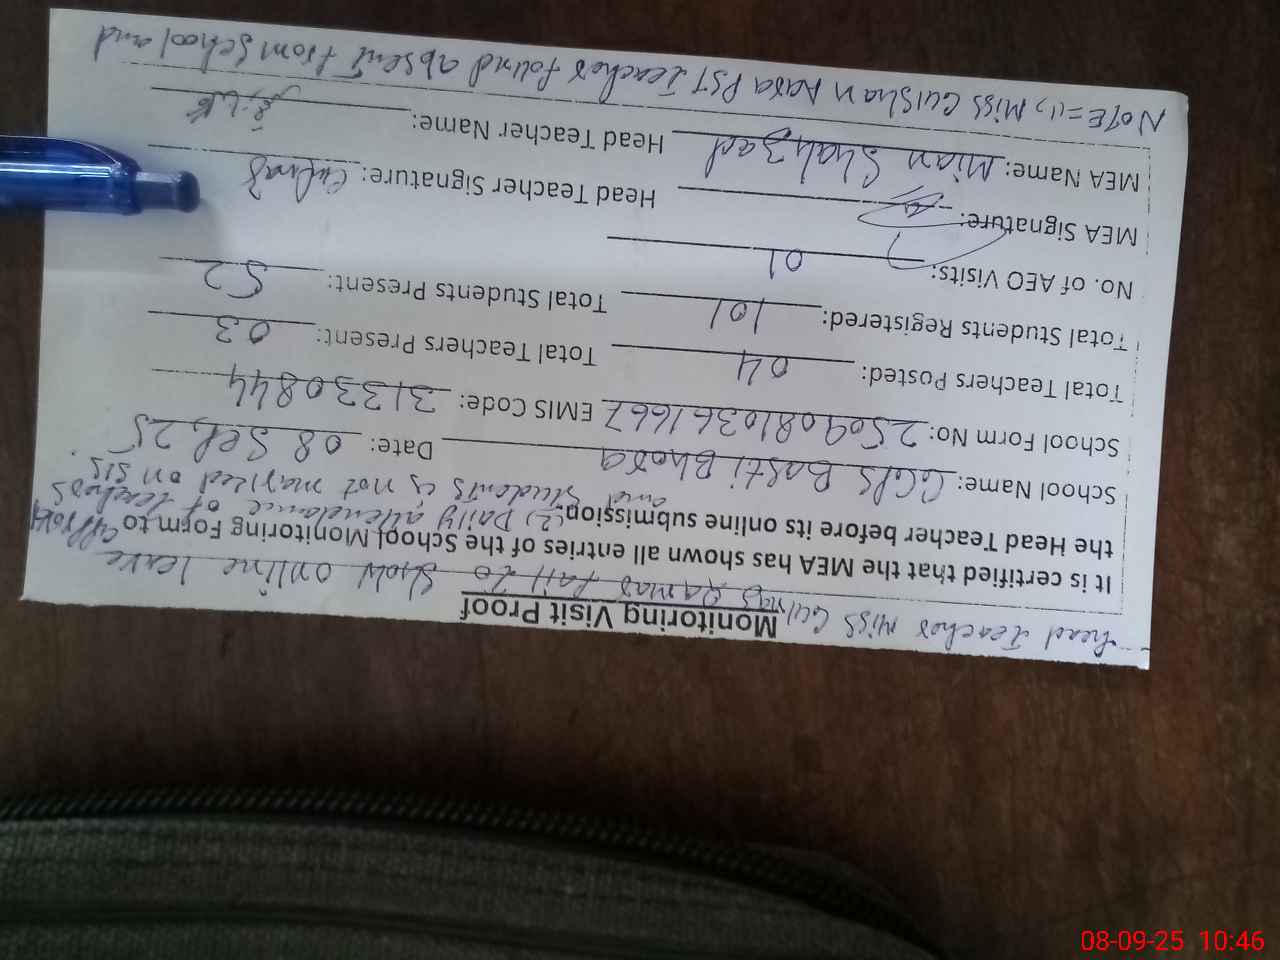 head Teacher Miss Gulnaz Qamar Fail to Show online leave
Monitoring Visit Proof
It is certified that the MEA has shown all entries of the School Monitoring Form to
the Head Teacher before its online submission.
(2), Daily attendance of teachers
and students is not marked on SIS.
School Name: GGPS Basti Bhora Date: 08 Sep, 25
School Form No: 250908103616667 EMIS Code: 31330844
Total Teachers Posted: 04 Total Teachers Present: 03
Total Students Registered: 101 Total Students Present: 52
No. of AEO Visits: 01
MEA Signature: Head Teacher Signature: Gulnaz
MEA Name: Mian Shahzad Head Teacher Name:
NOTE=(1), Miss Gulshan PST Teacher found absent from School and